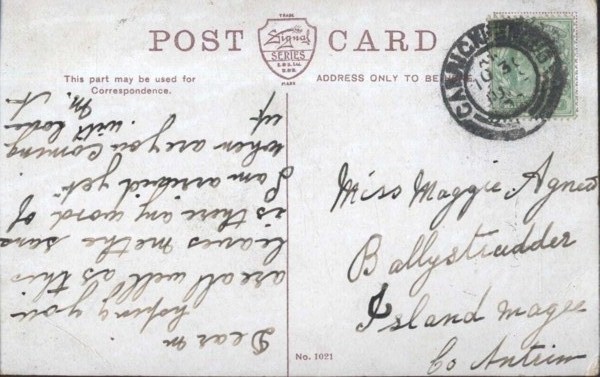 POST CARD
TRADE
Signal
SERIES
MARK
This part may be used for
Correspondence.
ADDRESS ONLY TO BE
CARRICKFERGUS
Dear M
hoping you
are all well as this
leaves me the same
is there any word of
Sam arriving yet
when are you coming
up. with love
M. A
Miss Maggie Agnew
Ballystrudder
Island magee
Co Antrim
No. 1021